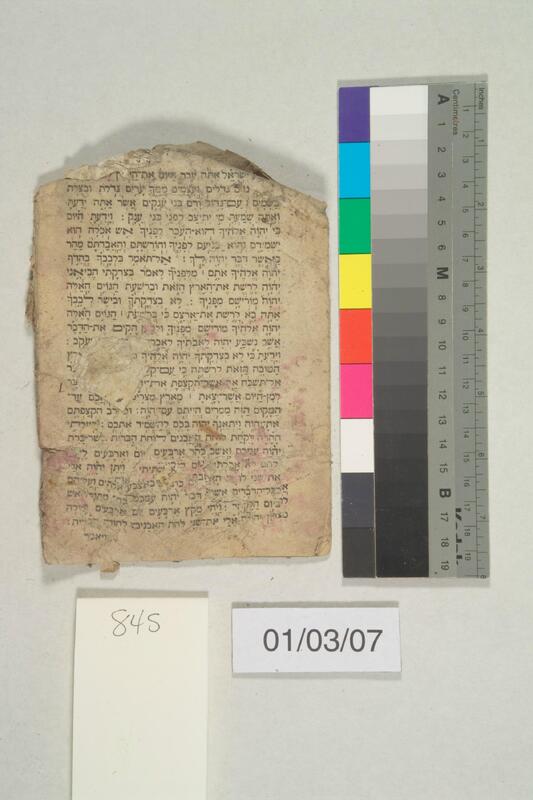 ישראל אתה עבר היום את הי
גוים גדלים ועצמים ממך ערים גדלת ובצרת
בשמים עם גדול ורם בני ענקים אשר אתה ידעת
ואתה שמעת מי יתיצב לפני בני ענק וידעת היום
כי יהוה אלהיך הוא העבר לפניך אש אכלה הוא
ישמידם והוא יכניעם לפניך והורשתם והאבדתם מהר
כאשר דבר יהוה לך אל תאמר בלבבך בהדף
יהוה אלהיך אתם מלפניך לאמר בצדקתי הביאני
יהוה לרשת את הארץ הזאת וברשעת הגוים האלה
יהוה מורישם מפניך לא בצדקתך ובישר לבבך
אתה בא לרשת את ארצם כי ברשעת הגוים האלה
יהוה אלהיך מורישם מפניך ולמען הקים את הדבר
אשר נשבע יהוה לאבתיך לאברהם יעקב
וידעת כי לא בצדקתך יהוה אלהיך הארץ
הטובה הזאת לרשתה כי עם קשה
אל תשכח את אשר הקצפת את יהוה
למן היום אשר יצאת מארץ מצרים עד באכם עד
המקום הזה ממרים הייתם עם יהוה ובחרב הקצפתם
את יהוה ויתאנף יהוה בכם להשמיד אתכם בעלתי
ההרה לקחת לוחת האבנים לוחת הברית אשר כרת
יהוה עמכם ואשב בהר ארבעים יום וארבעים לילה
לחם לא אכלתי ומים לא שתיתי ויתן יהוה אלי
את שני לוחת האבנים כתבים באצבע אלהים ועליהם
ככל הדברים אשר דבר יהוה עמכם בהר מתוך האש
ביום הקהל ויהי מקץ ארבעים יום וארבעים לילה
נתן יהוה אלי את שני לחת האבנים לחות הברית
ויאמר
845
01/03/07
Inches
Centimetres
1 2 3 4 5 6 7 8 9 10 11 12 13 14 15 16 17 18 19
A
M
B